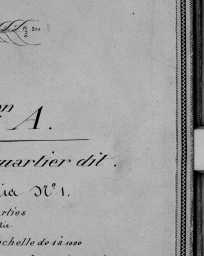 on A.
uartier dit.
ia N° 1.
rties
lle
chelle de 1 à 1000